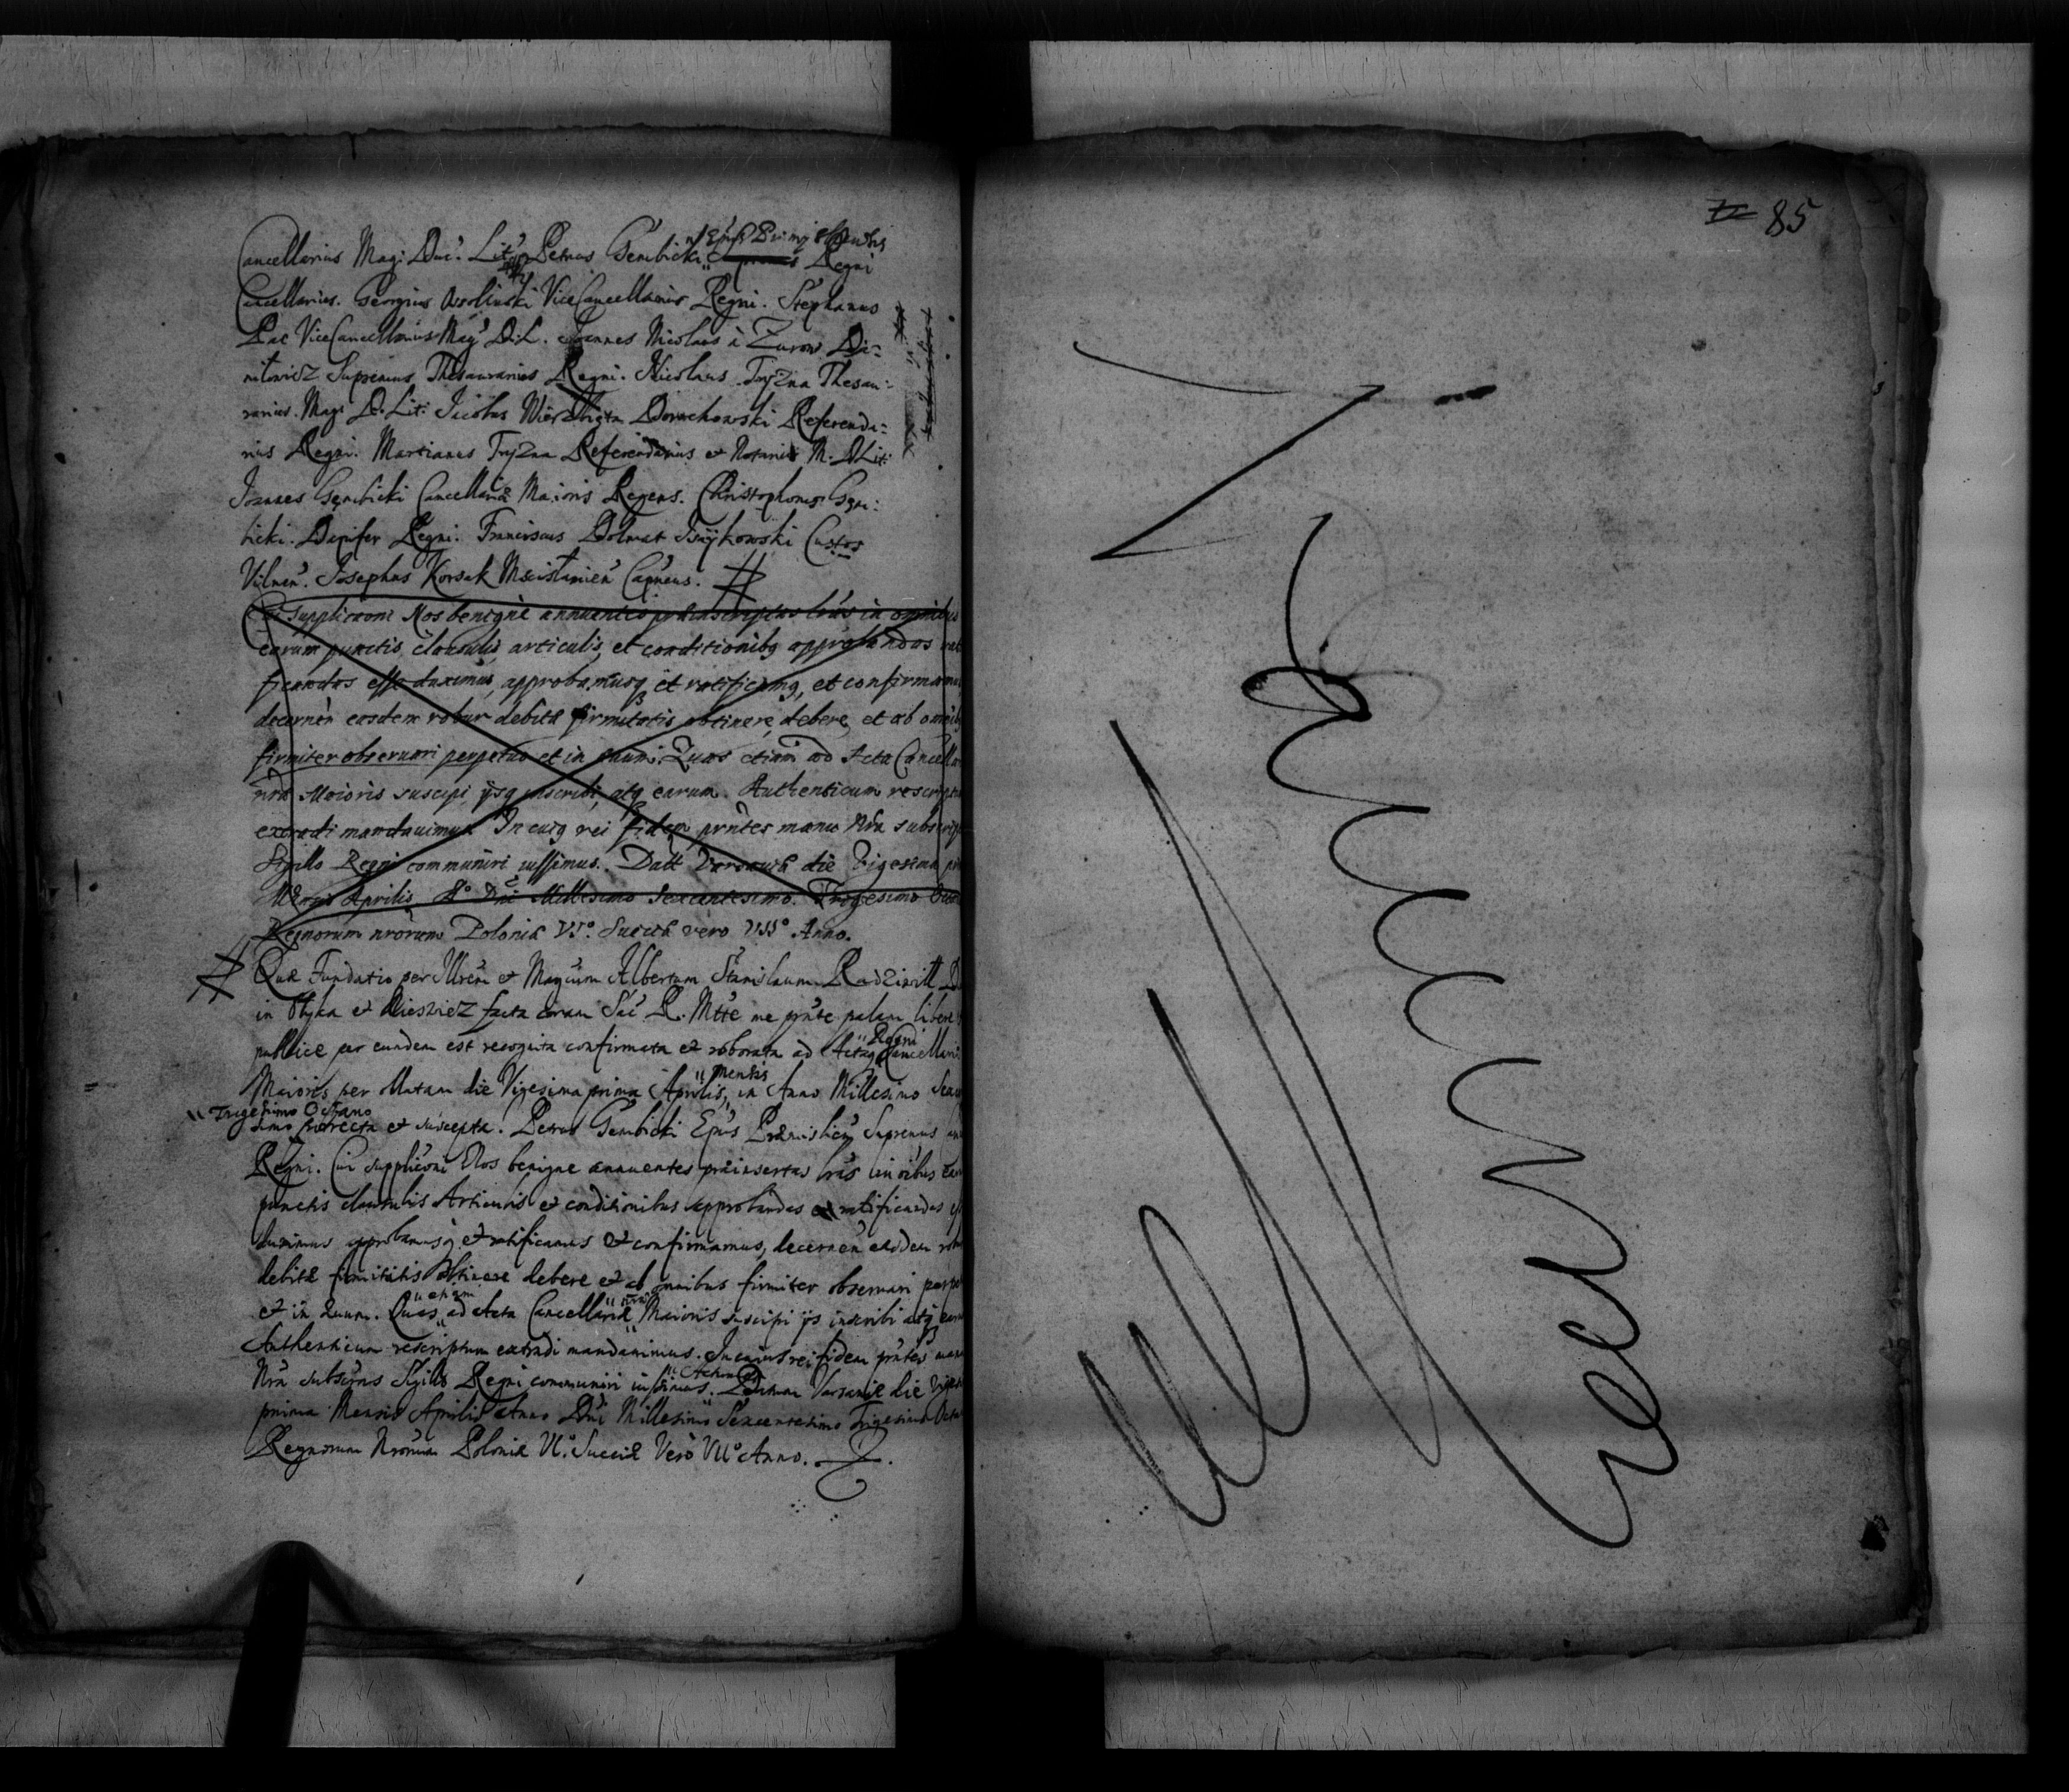 Cancellarius Mag: Duc. Lit: Petrus Gembicki Regni
Cancellarius. Georgius Ossolinski ViceCancellarius Regni. Stephanus
Pac ViceCancellarius Mag. D. L. Joannes Nicolaus à Zurow Da-
nilowicz Supremus Thesaurarius Regni. Nicolaus Tryzna Thesau-
rarius. Mag: D. Lit: Jacobus Wierzbieta Doruchowski Referenda-
rius Regni. Martianus Tryzna Referendarius et Notarius M. D Lit:
Joannes Gembicki Cancellariæ Maioris Regens. Christophorus Gem-
bicki. Dapifer Regni. Franciscus Dolmat Isaijkowski Custos
Vilnen. Josephus Korsak Mscislavien Capneus. #
Cui supplicaoni Nos benignè annuentes præinsertas lras in omnibus
earum punctis, clausulis, articulis, et conditionibq approbandas
ficandas esse duximus, approbamusq et ratificamq, et confirmamus
decernen easdem robur debitæ firmitatis obtinere, debere, et ab omnib
firmiter observari perpetuo et in ævum. Quas etiam ad Acta Cancella
nræ Maioris suscipi ijsq inscribi, atq earum Authenticum rescriptu
extradi mandavimus. In cuiq rei fidem prntes manu Nra subscrip
Sigillo Regni communiri iussimus. Datt Varsaviæ die Vigesima pri
Mensis Aprilis A° Dni Millesimo Sexcentesimo. Trigesimo Octa
Regnorum nrorum Poloniæ VI°. Sueciæ vero VII° Anno.
# Quæ Fundatio per Illrem et Magcum Albertum Stanislaum Radziwill D
in Olyka et Nieswiez facta coram Sac. R. Mtte me prnte palam libere
" Regni
publice per eundem est recognita confirmata et roborata ad Acta Cancellari
" Mensis
Maioris per Oblatam die Vigesima prima Aprilis, in Anno Millesimo Sexc
" Trigesimo Octavo
simo porrecta et suscepta. Petrus Gembicki Epus Præmislien Supremus
Regni. Cui supplicaoni Nos benigne annuentes præinsertas lras in oibus ear
punctis clausulis Articulis et conditionibus approbandas et ratificandas
duximus approbamusq et ratificamus et confirmamus, decernen easdem rob
debitæ firmitatis obtinere debere et ab omnibus firmiter observari perpe
" etiam " nræ
et in ævum. Quas ad Acta Cancellariæ Maioris suscipi ijs inscribi atq earu
Authenticum rescriptum extradi mandavimus. In cuius rei fidem prntes manu
Nra subscrias Sigillo Regni communiri iussimus. Datum Varsaviæ die Viges
prima Mensis Aprilis Anno Dni Millesimo Sexcentesimo Trigesimo Octa
Regnorum Nrorum Poloniæ VI°. Sueciæ Verò VII° Anno.
85